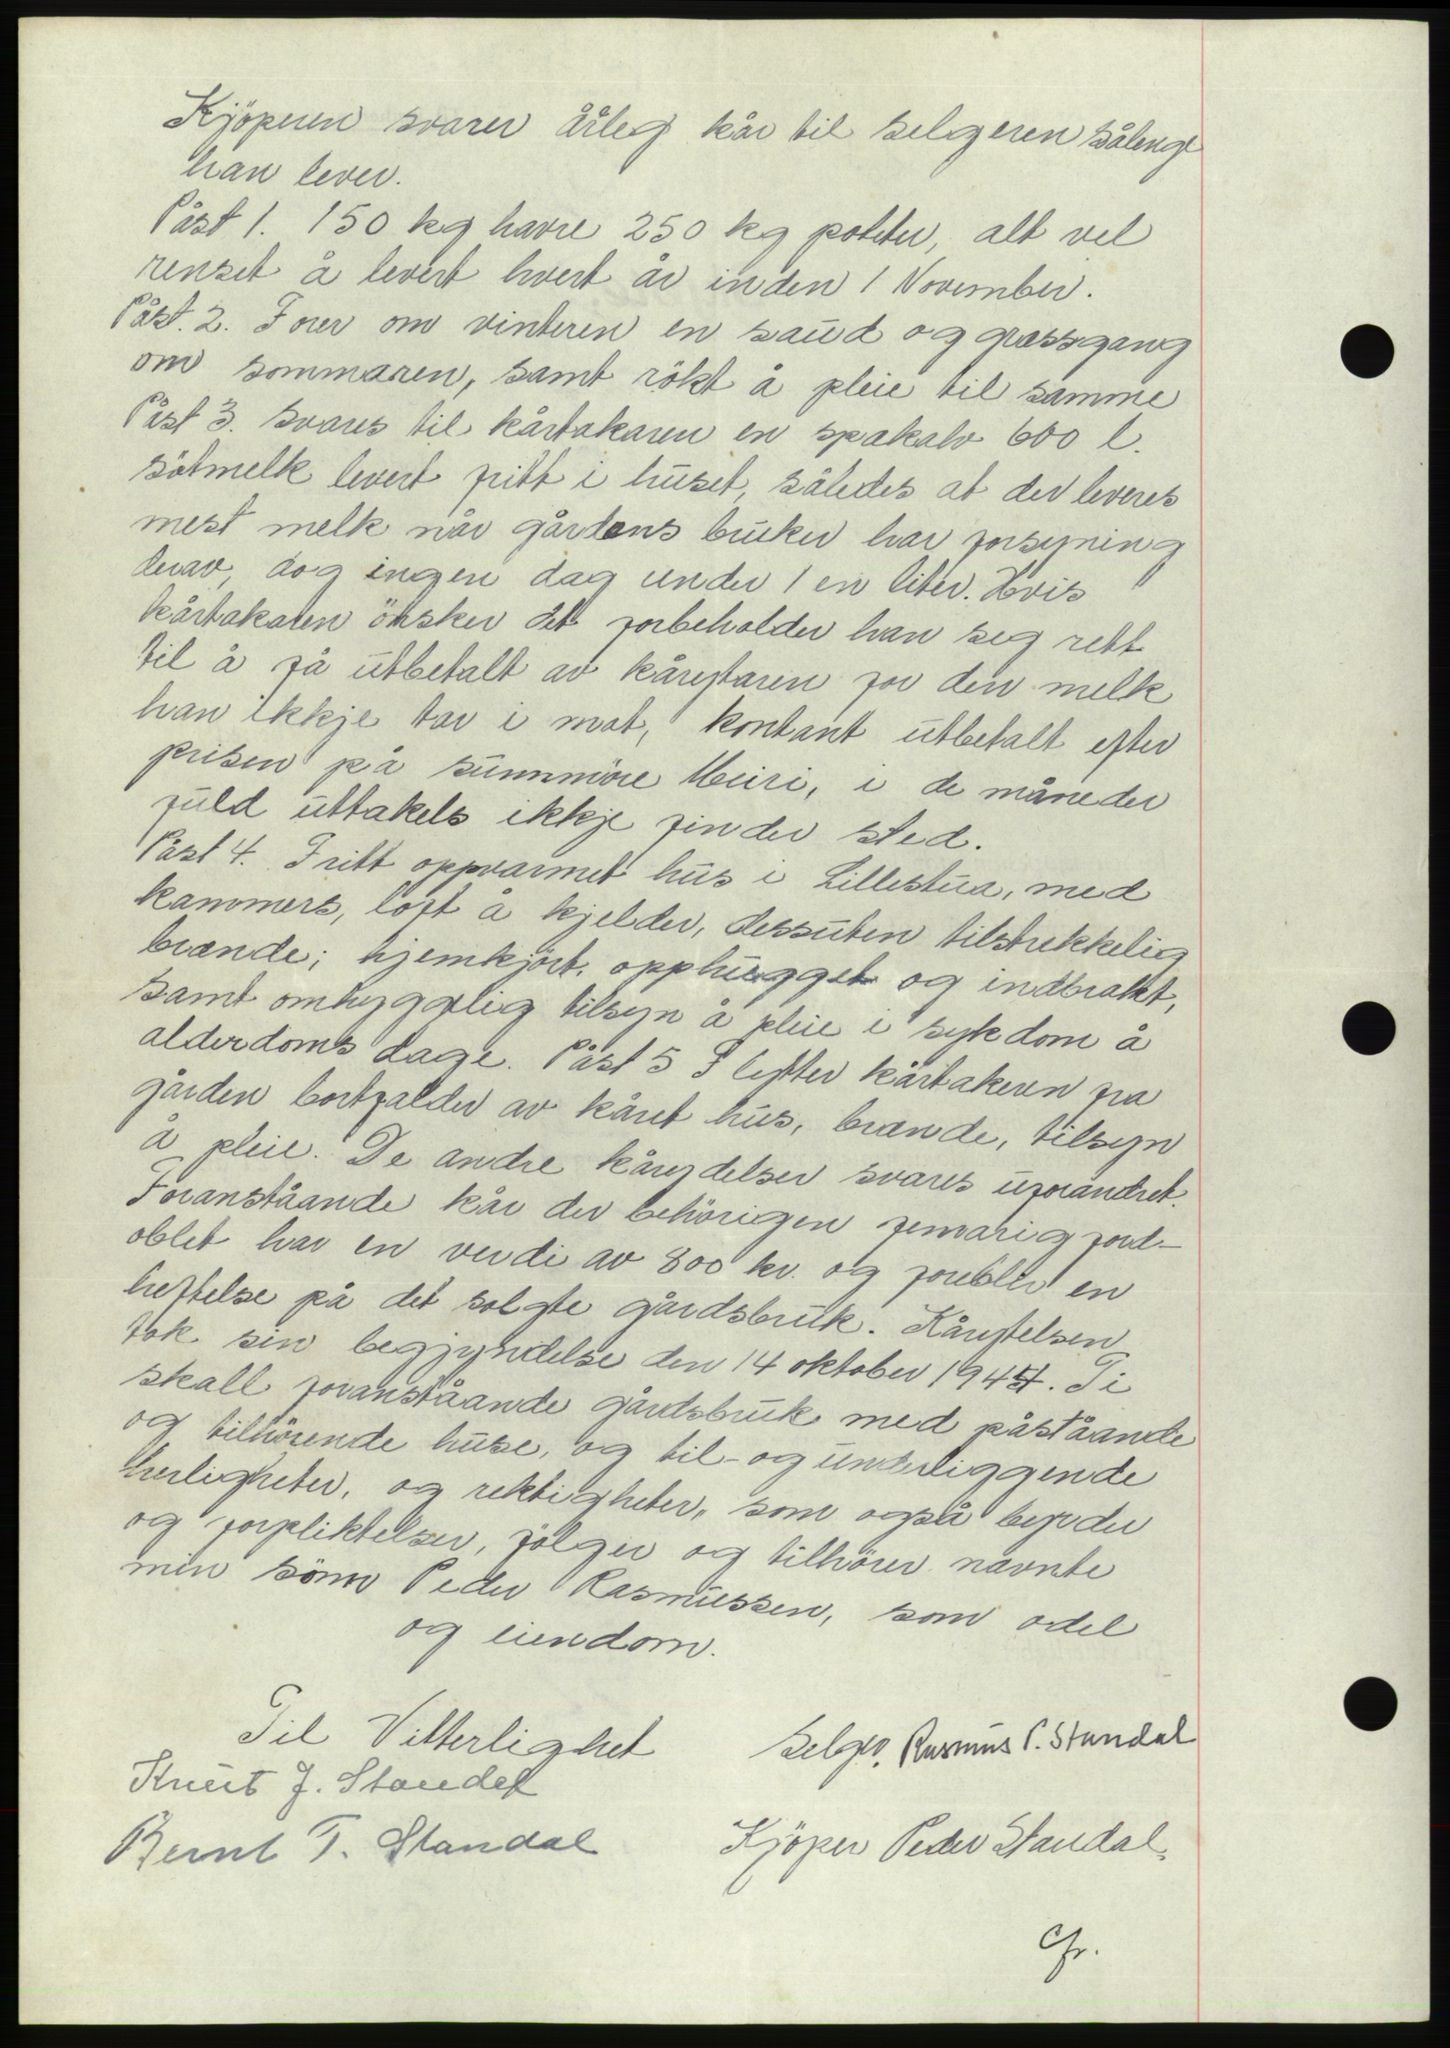 Kjöperen svarer årleg kår til selgeren sålenge
han lever.
Påst 1. 150 kg havre 250 kg poteter, alt vel
renset å levert hvert år inden 1 November.
Påst. 2. Forer om vinteren en saud og græssgang
om sommaren, samt rökt å pleie til samme
Påst 3. Svares til kårtakaren en spækalv 600 l.
sötmelk levert fritt i huset, således at der leveres
mest melk når gårdens bruker har forsyning
derav, dog ingen dag under 1 en liter. Hvis
kårtakaren önsker det forbeholder han seg rett
til å få utbetalt av kårytaren for den melk
han ikkje tar i mot, kontant utbetalt efter
prisen på sunnmöre Meiri, i de måneder
fuld uttakels ikkje finder sted.
Påst 4. Fritt oppvarmet hus i Lillestua, med
kammers, loft å kjelder, dessuten tilstrekkelig
brænde; hjemkjört, opphugget og indbrakt,
samt omhyggelig tilsyn å pleie i sykdom å
alderdoms dage. Påst 5 Flytter kårtakeren fra
gården bortfalder av kåret hus, brænde, tilsyn
å pleie. De andre kårydelser svares uforandret.
Foranståande kår der behörigen femårig ford-
oblet har en verdi av 800 kr. og forebler en
heftelse på det solgte gårdsbruk. Kårytelsen
tok sin begjyndelse den 14 oktober 1944. Ti
skall foranståande gårdsbruk med påståande
og tilhörende huse, og til- og underliggende
herligheter, og rektigheter, som også byrder
og forpliktelser, fölger og tilhörer nævnte
min sönn Peder Rasmussen, som odel
og eiendom.
Til Vitterlighet
Selger, Rasmus P. Standal
Knut J. Standal
Bernt T. Standal
Kjöper Peder Standal.